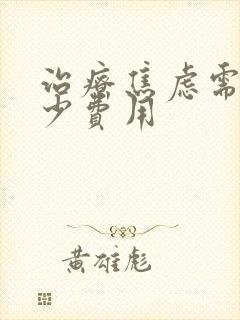 治療焦慮需
少費用
黃雄彪